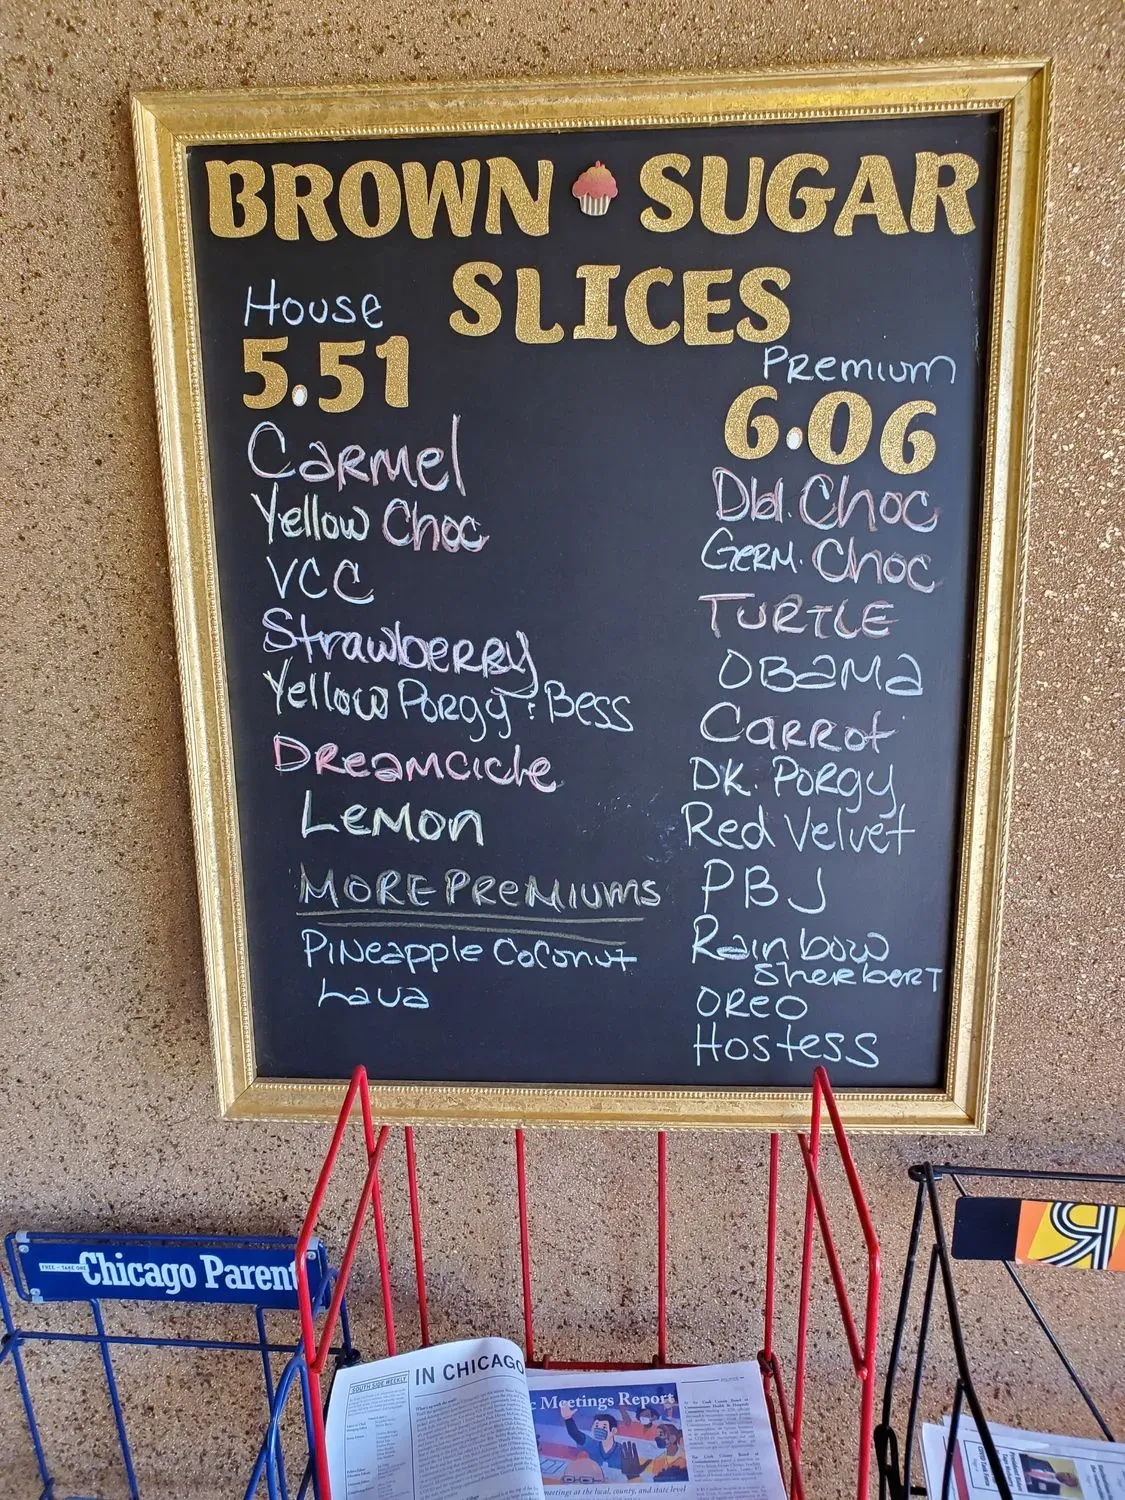 BROWN SUGAR
SLICES
House
5.51
Carmel
Yellow Choc
VCC
Strawberry
Yellow Porgy & Bess
Dreamcicle
Lemon
MORE PREMIUMS
Pineapple Coconut
Lava
Premium
6.06
Dbl. Choc
Germ. Choc
TURTLE
OBama
Carrot
DK. Porgy
Red Velvet
PBJ
Rainbow
Sherbert
OREO
Hostess
FREE - TAKE ONE Chicago Parent
SOUTH SIDE WEEKLY
IN CHICAGO
Meetings Report
meetings at the local, county, and state level